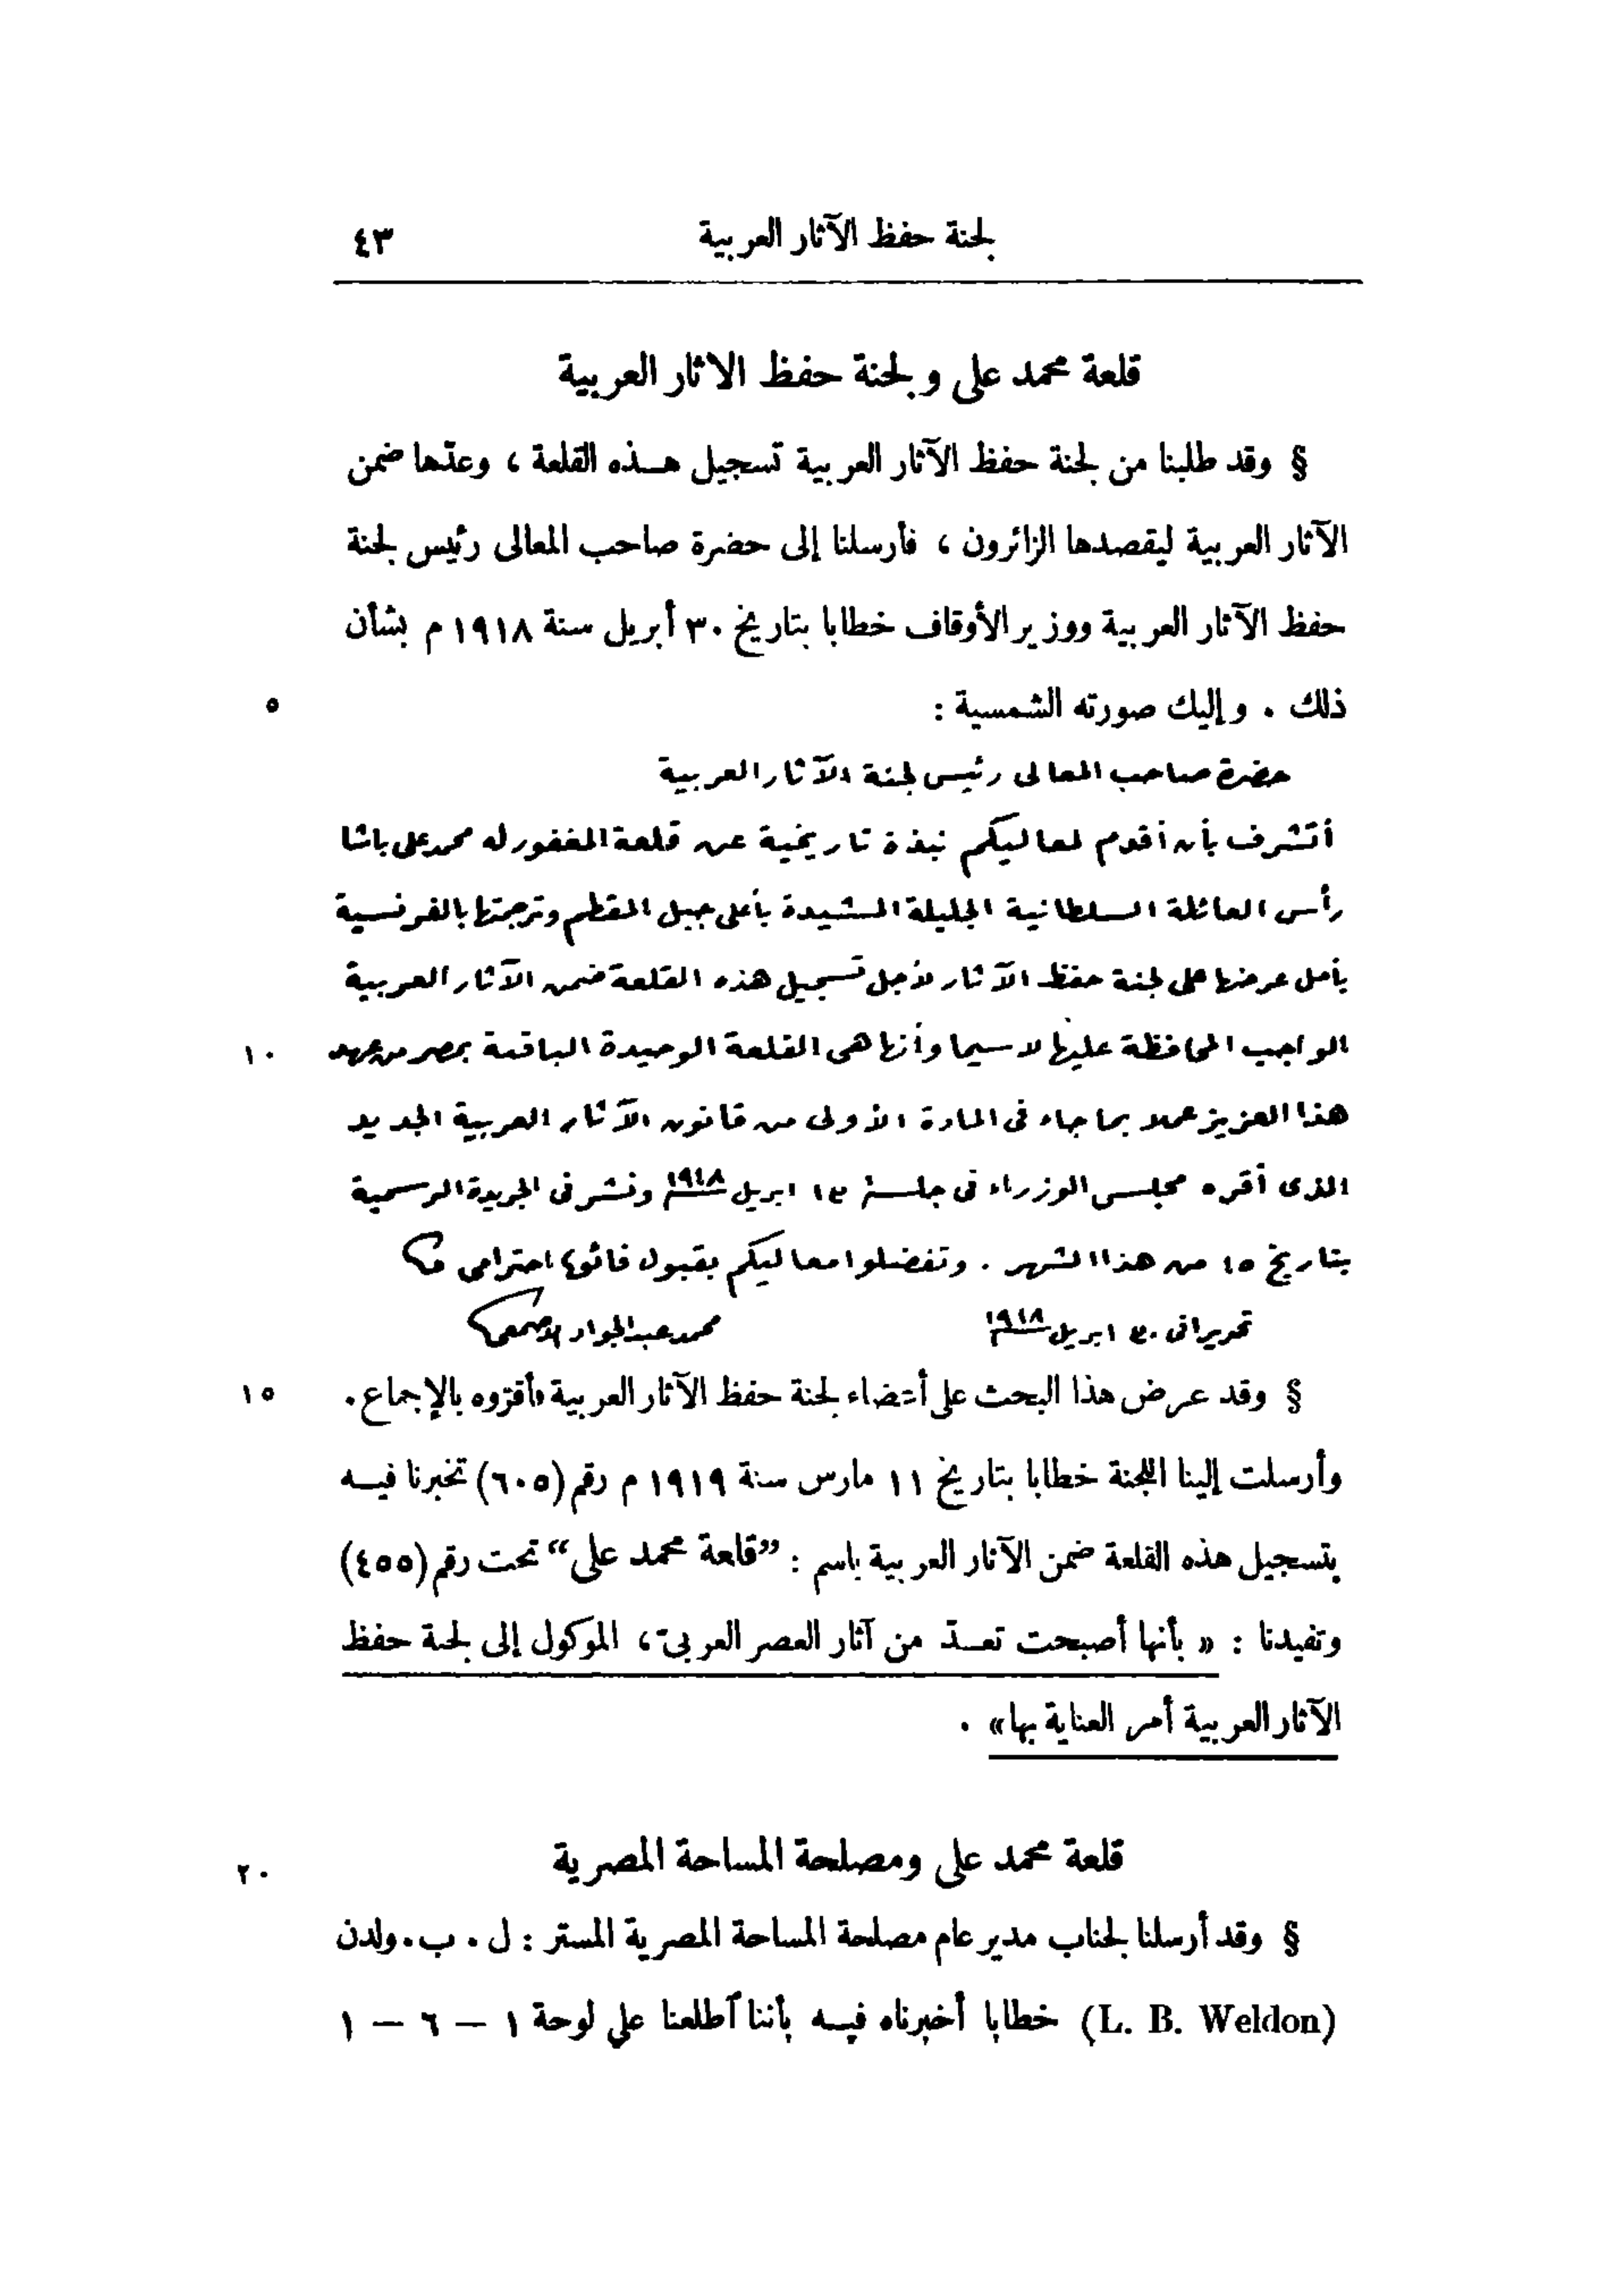 لجنة حفظ الآثار العربية ٤٣
قلعة محمد على ولجنة حفظ الاثار العربية
§ وقد طلبنا من لجنة حفظ الآثار العربية تسجيل هــذه القلعة ، وعدّها ضمن
الآثار العربية ليقصدها الزائرون ، فأرسلنا إلى حضرة صاحب المعالى رئيس لجنة
حفظ الآثار العربية ووزير الأوقاف خطابا بتاريخ ٣٠ أبريل سنة ١٩١٨ م بشأن
ذلك . وإليك صورته الشمسية : ٥
حضرة صاحب المعالى رئيس لجنة الآثار العربية
أتشرف بأن أقدم لمعاليكم نبذة تاريخية عن قلعة المغفور له محمد على باشا
رأس العائلة السلطانية الجليلة المشيدة بأعلى جبل المقطم وترجمتها بالفرنسية
بأمل عرضها على لجنة حفظ الآثار لأجل تسجيل هذه القلعة ضمن الآثار العربية
الواجب المحافظة عليها لاسيما وأنها هى القلعة الوحيدة الباقية بمصر من عهد ١٠
هذا العزيز عملا بما جاء فى المادة الأولى من قانون الآثار العربية الجديد
الذى أقره مجلس الوزراء فى جلسة ١٣ ابريل ١٩١٨ ونشر فى الجريدة الرسمية
بتاريخ ١٥ من هذا الشهر . وتفضلوا معاليكم بقبول فائق احترامى
تحريرا فى ٣٠ ابريل ١٩١٨ محمد عبد الجواد الأصمعى
§ وقد عرض هذا البحث على أعضاء لجنة حفظ الآثار العربية فأقرّوه بالإجماع . ١٥
وأرسلت إلينا اللجنة خطابا بتاريخ ١١ مارس سنة ١٩١٩ م رقم (٦٠٥) تخبرنا فيــه
بتسجيل هذه القلعة ضمن الآثار العربية باسم : ”قلعة محمد على“ تحت رقم (٤٥٥)
وتفيدنا : « بأنها أصبحت تعــدّ من آثار العصر العربىّ ، الموكول إلى لجنة حفظ
الآثار العربية أمر العناية بها» .
قلعة محمد على ومصلحة المساحة المصرية ٢٠
§ وقد أرسلنا لجناب مدير عام مصلحة المساحة المصرية المستر : ل . ب . ولدن
(L. B. Weldon) خطابا أخبرناه فيــه بأننا ٱطلعنا على لوحة ١ – ٦ – ١